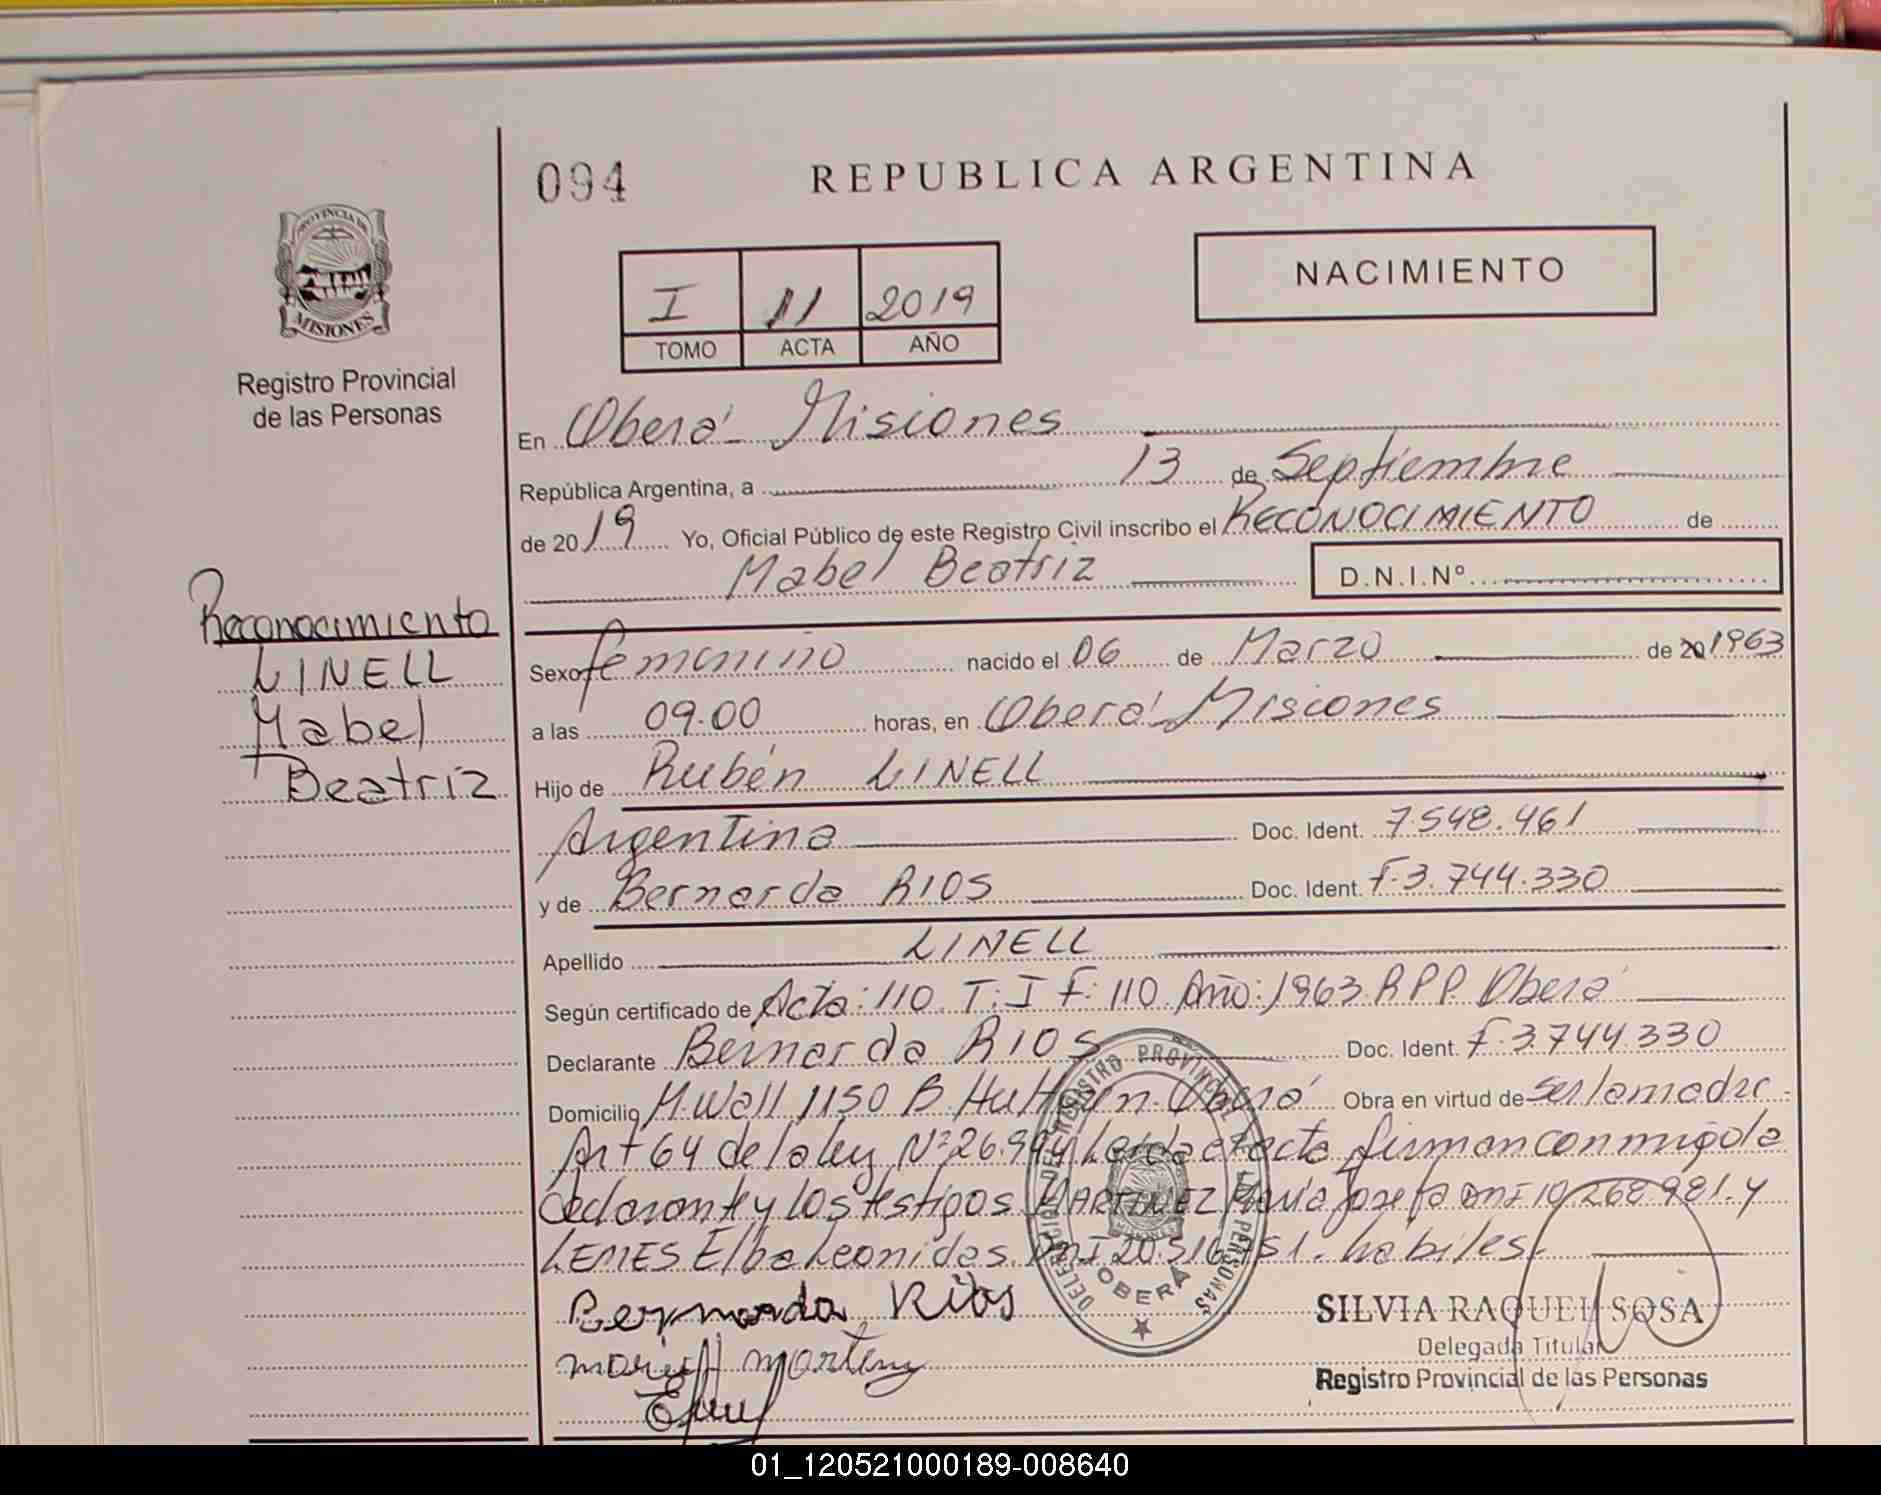 094
REPUBLICA ARGENTINA
PROVINCIA DE
MISIONES
Registro Provincial
de las Personas
I 11 2019
TOMO ACTA AÑO
NACIMIENTO
En Oberá - Misiones
República Argentina, a 13 de Septiembre
de 2019 Yo, Oficial Público de este Registro Civil inscribo el RECONOCIMIENTO de
Mabel Beatriz D.N.I.Nº
Reconocimiento
LINELL
Mabel
Beatriz
Sexo femenino nacido el 06 de Marzo de 20 1963
a las 09.00 horas, en Oberá - Misiones
Hijo de Rubén LINELL
Argentina Doc. Ident. 7548.461
y de Bernarda RIOS Doc. Ident. F.3.744.330
Apellido LINELL
Según certificado de Acta: 110. T: I F: 110. Año: 1963. R.P.P. Oberá
Declarante Bernarda RIOS Doc. Ident. F.3.744.330
Domicilio M.Wall 1150 B. Oberá Obra en virtud de ser la madre -
Art 64 de la ley Nº 26.994 Leida el acta firman conmigo la
declarante y los testigos MARTINEZ María Josefa DNI 10.268.981. y
LEMES Elba Leonidas. DNI 20.516. hábiles.
DELEGACION DEL REGISTRO PROVINCIAL DE LAS PERSONAS
OBERÁ
Bernarda Rios
SILVIA RAQUEL SOSA
Delegada Titular
Registro Provincial de las Personas
01_120521000189-008640